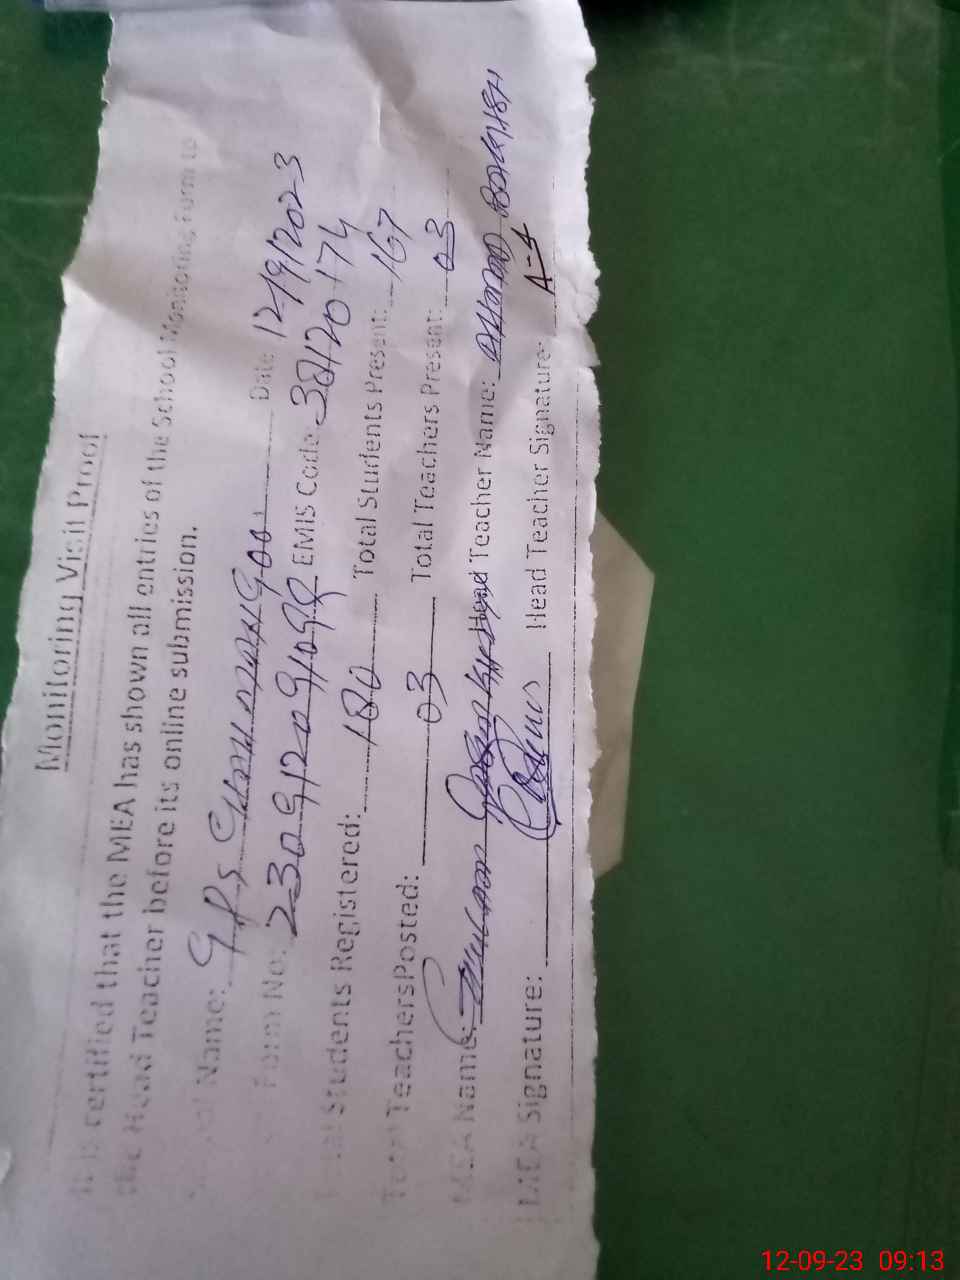 Monitoring Visit Proof
It is certified that the MEA has shown all entries of the School Monitoring Form to
the Head Teacher before its online submission.
Name: GPS Date 12/9/2023
Form No: 230912091099 EMIS Code 38120174
Students Registered: 180 Total Students Present: 167
Total Teachers Posted: 03 Total Teachers Present: 03
MEA Name: Head Teacher Name:
MEA Signature: Head Teacher Signature:
12-09-23 09:13